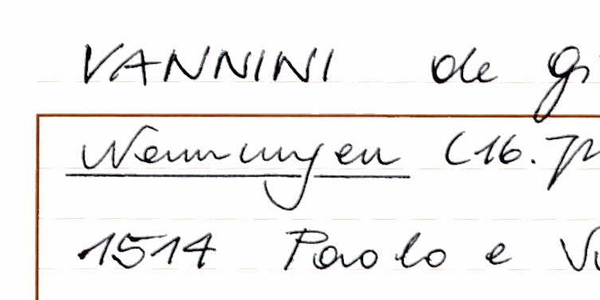 VANNINI de Gi
Nennungen (16. M
1514 Paolo e Vi